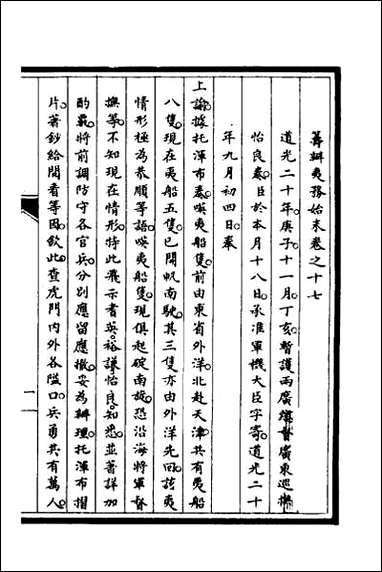 籌辦夷務始末卷之十七
道光二十年庚子十一月丁亥暫護兩廣總督廣東巡撫
怡良奏臣於本月十八日承准軍機大臣字寄道光二十
年九月初四日奉
上諭據托渾布奏嘆夷船隻前由東省外洋北赴天津共有夷船
八隻現在夷船五隻已開帆南駛其三隻亦由外洋先回該夷
情形極為恭順等語嘆夷船隻現俱起碇南旋恐沿海將軍督
撫等不知現在情形特此飛示耆英裕謙怡良知悉並著詳加
酌覈將前調防守各官兵分別應留應撤妥為辦理托渾布摺
片著鈔給閱看等因欽此查虎門內外各隘口兵勇共有萬人
一